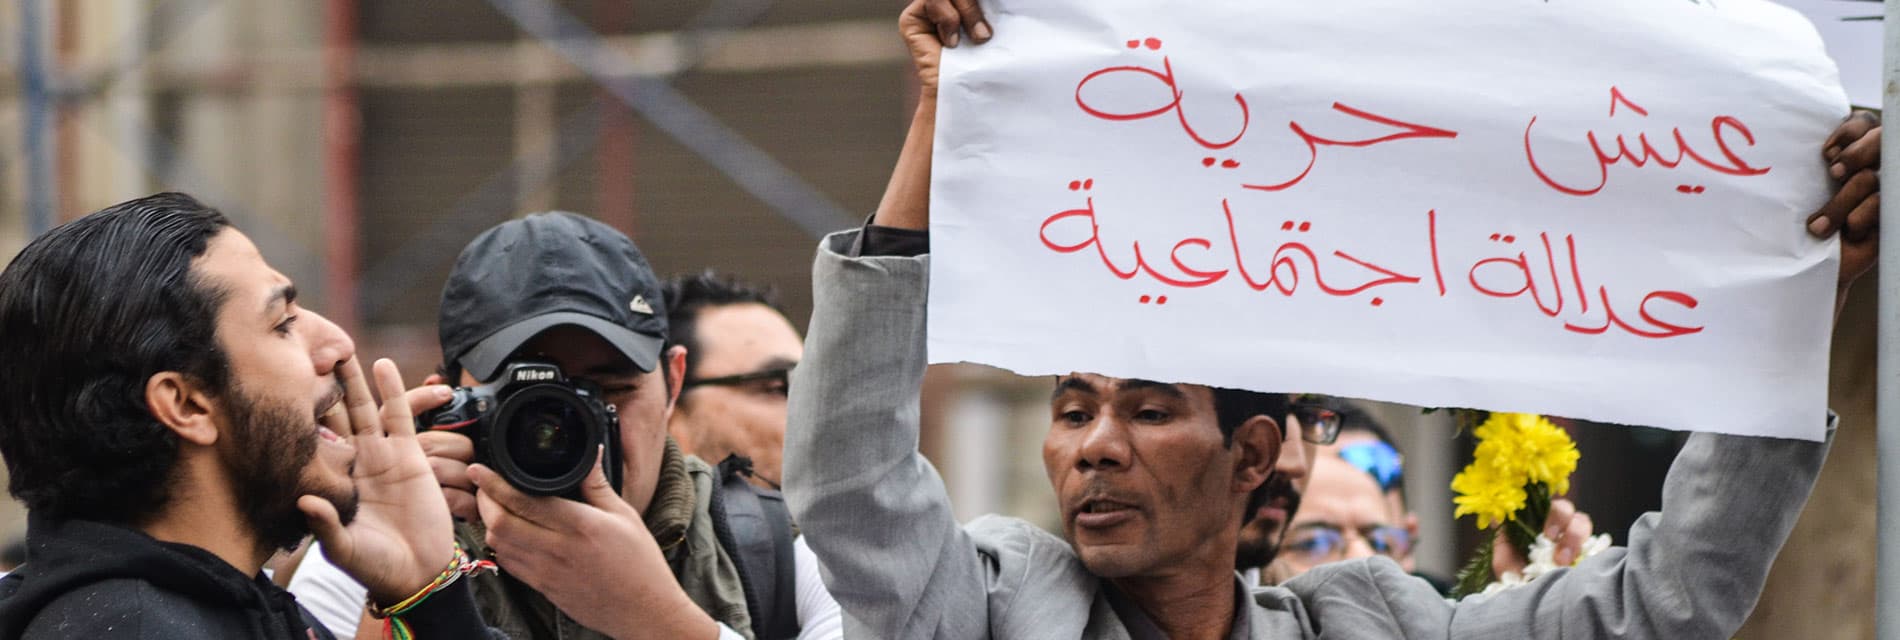 عيش حرية
عدالة اجتماعية
Nikon